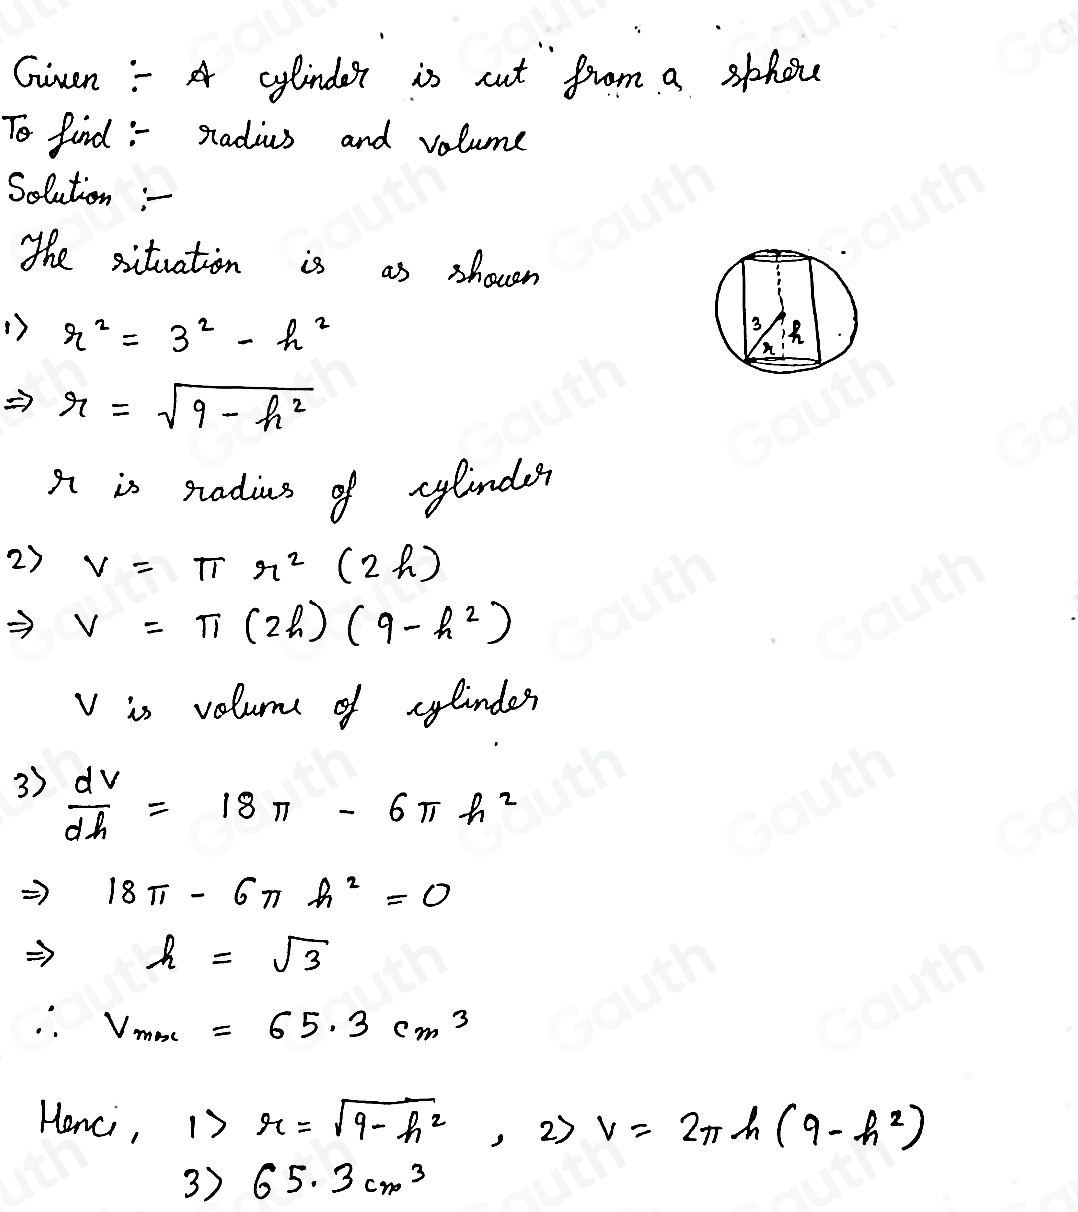 Given :- A cylinder is cut from a sphere
To find :- radius and volume
Solution :-
The situation is as shown
1) r² = 3² - h²
⇒ r = √(9 - h²)
3
h
r
r is radius of cylinder
2) V = π r² (2h)
⇒ V = π (2h) (9 - h²)
V is volume of cylinder
3) dV/dh = 18π - 6π h²
⇒ 18π - 6π h² = 0
⇒ h = √3
∴ Vmax = 65.3 cm³
Hence, 1) r = √(9 - h²) , 2) V = 2πh (9 - h²)
3) 65.3 cm³